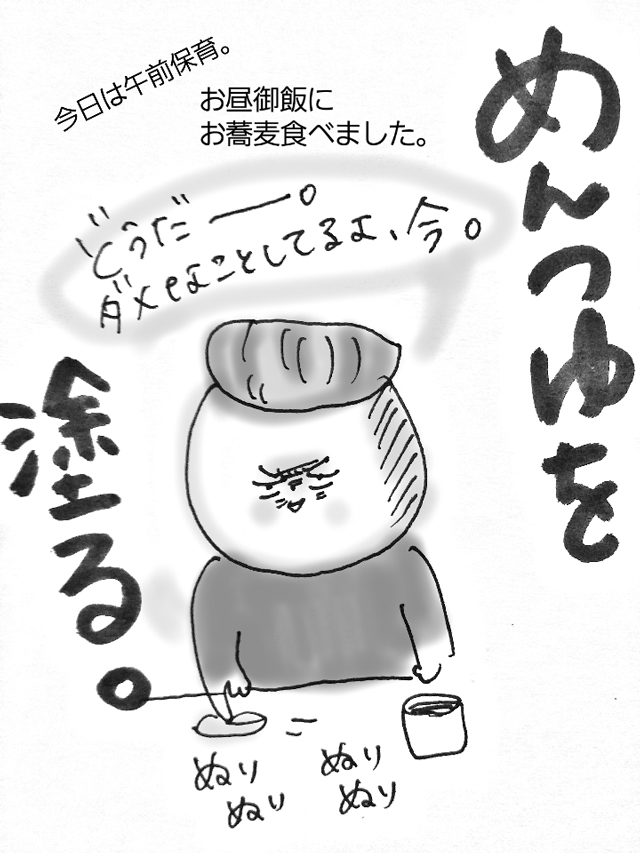 今日は午前保育。
お昼御飯に
お蕎麦食べました。
めんつゆを
塗る。
どうだー。
ダメなことしてるよ、今。
ぬり
ぬり
ぬり
ぬり